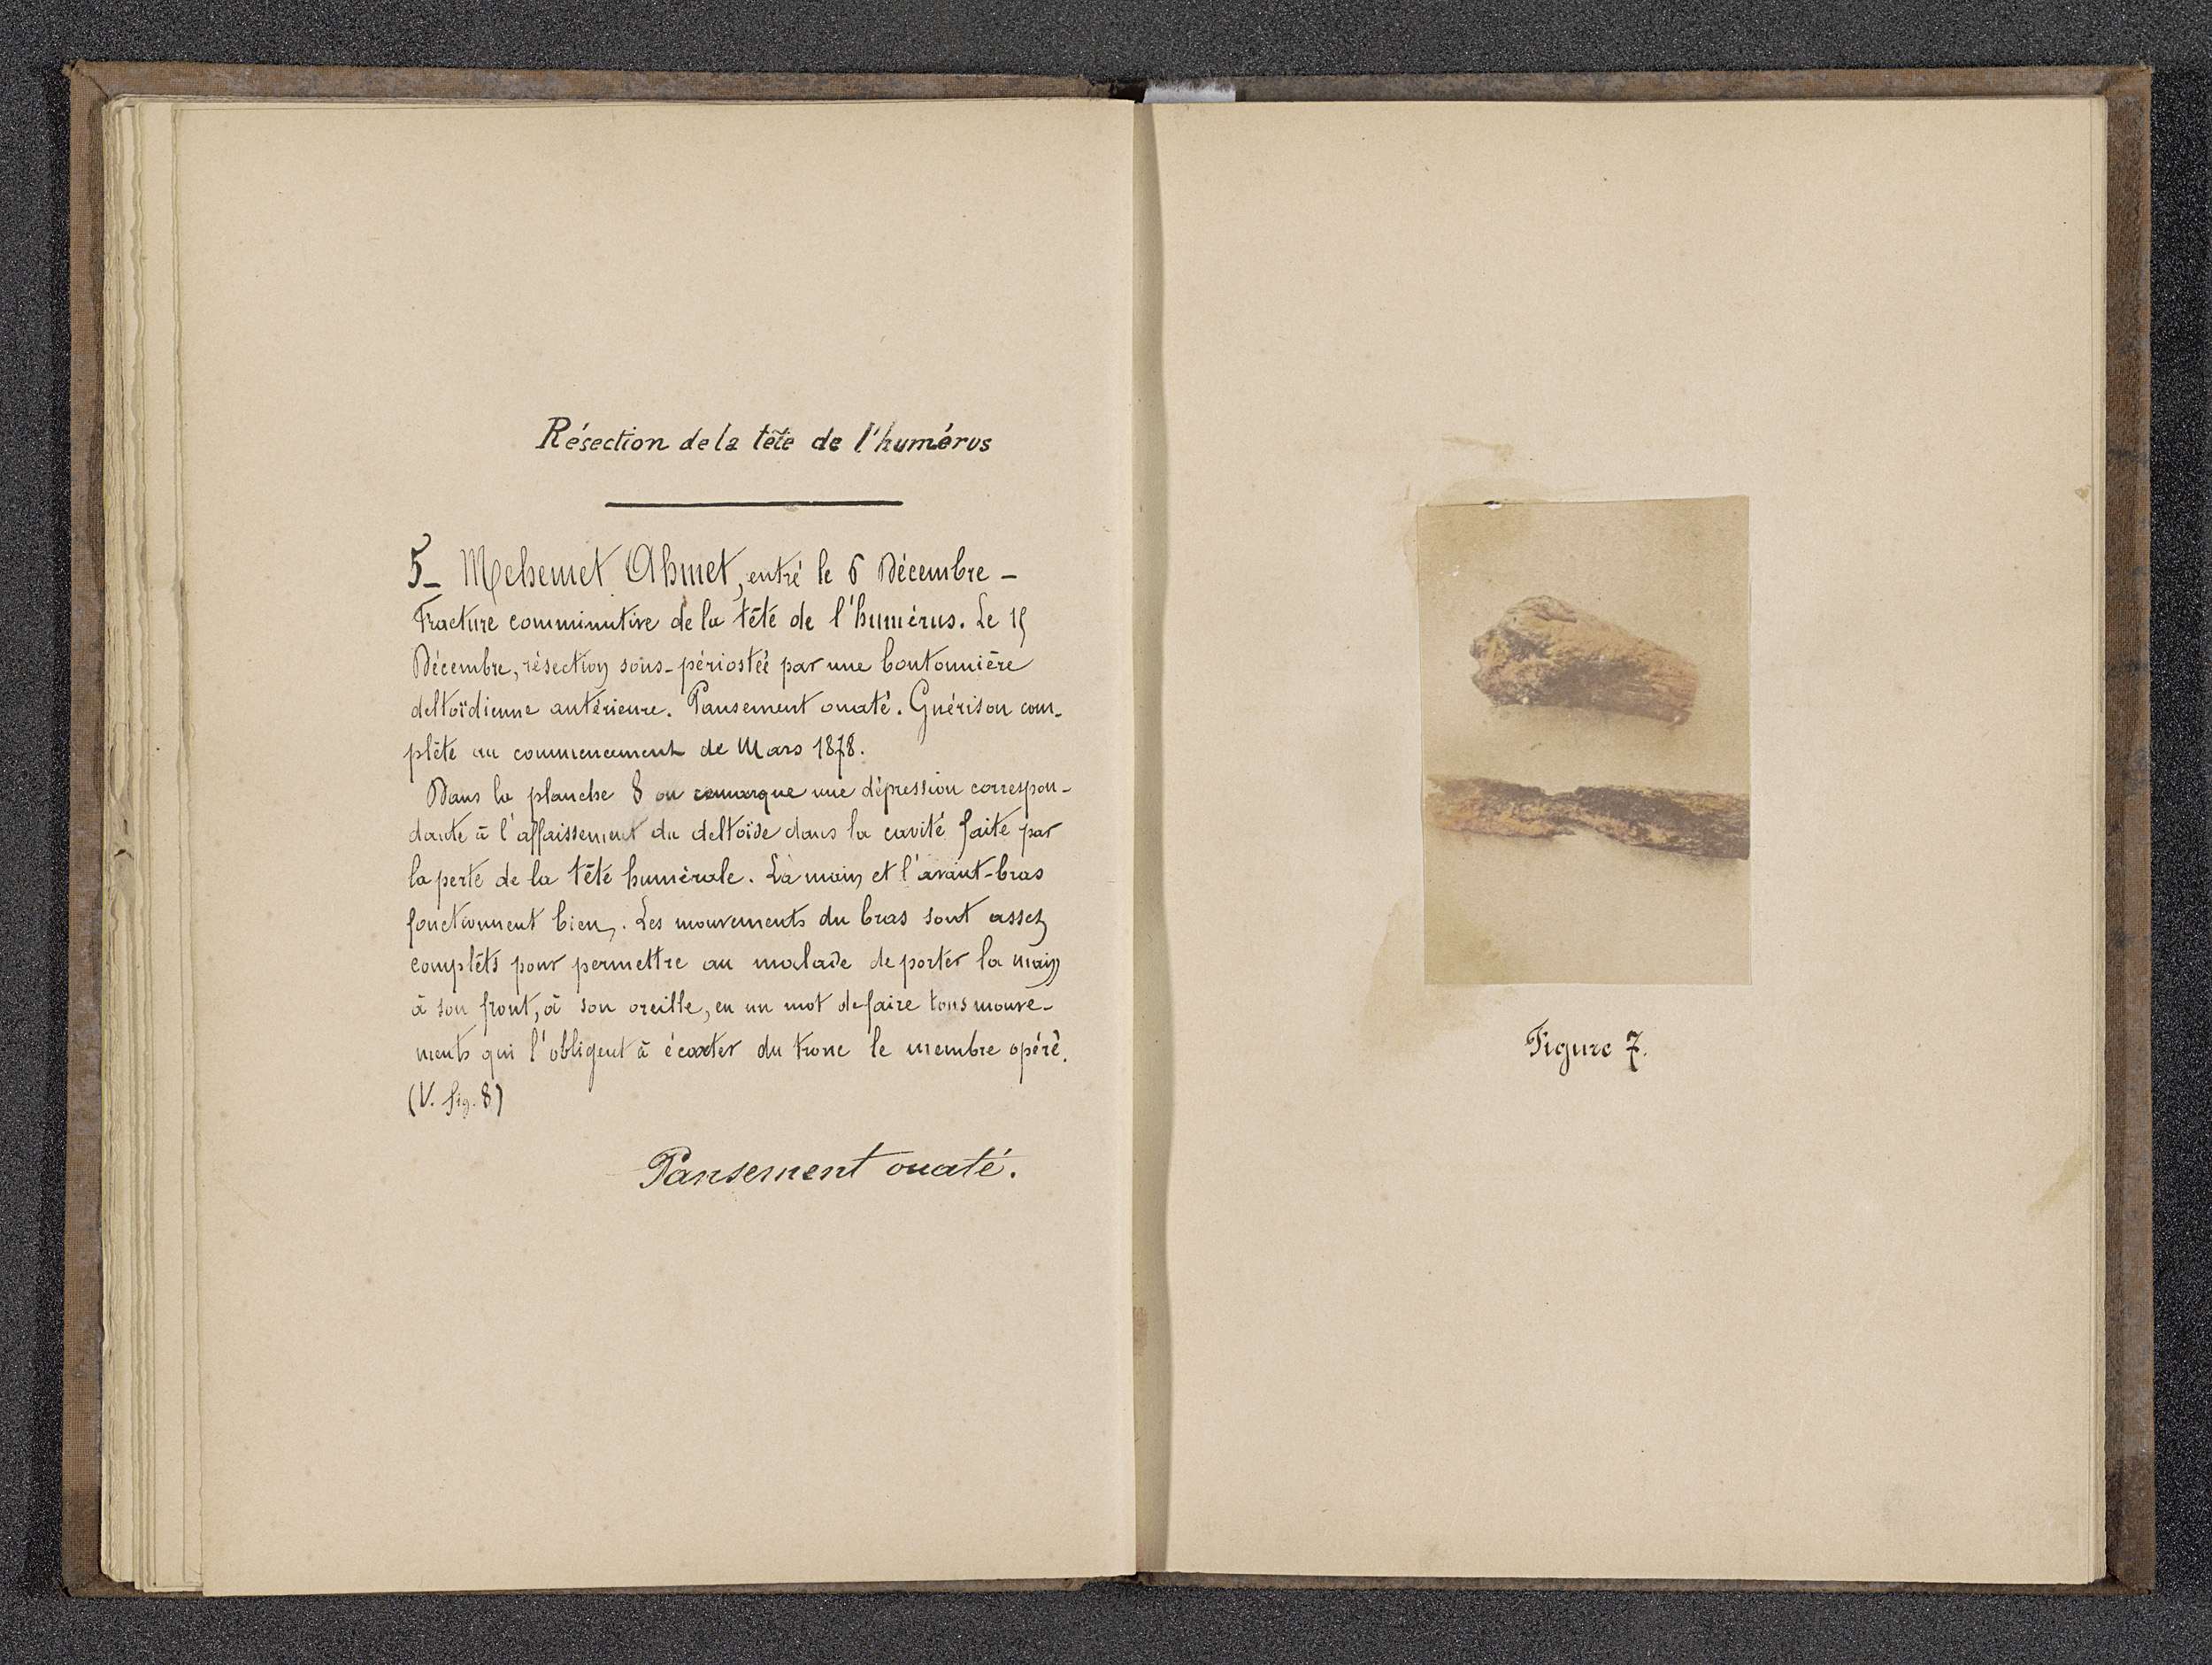 Résection de la tête de l'humérus
5_ Mehemet Ahmet, entré le 6 Décembre _
Fracture comminutive de la tête de l'humérus. Le 15
Décembre, résection sous-périostée par une boutonnière
deltoïdienne antérieure. Pansement ouaté. Guérison com-
plète au commencement de Mars 1878.
Dans la planche 8 on remarque une dépression correspon-
dante à l'affaissement du deltoïde dans la cavité faite par
la perte de la tête humérale. La main et l'avant-bras
fonctionnent bien. Les mouvements du bras sont assez
complets pour permettre au malade de porter la main
à son front, à son oreille, en un mot de faire tous mouve-
ments qui l'obligent à écarter du tronc le membre opéré.
(V. fig. 8)
Pansement ouaté.
Figure 7.